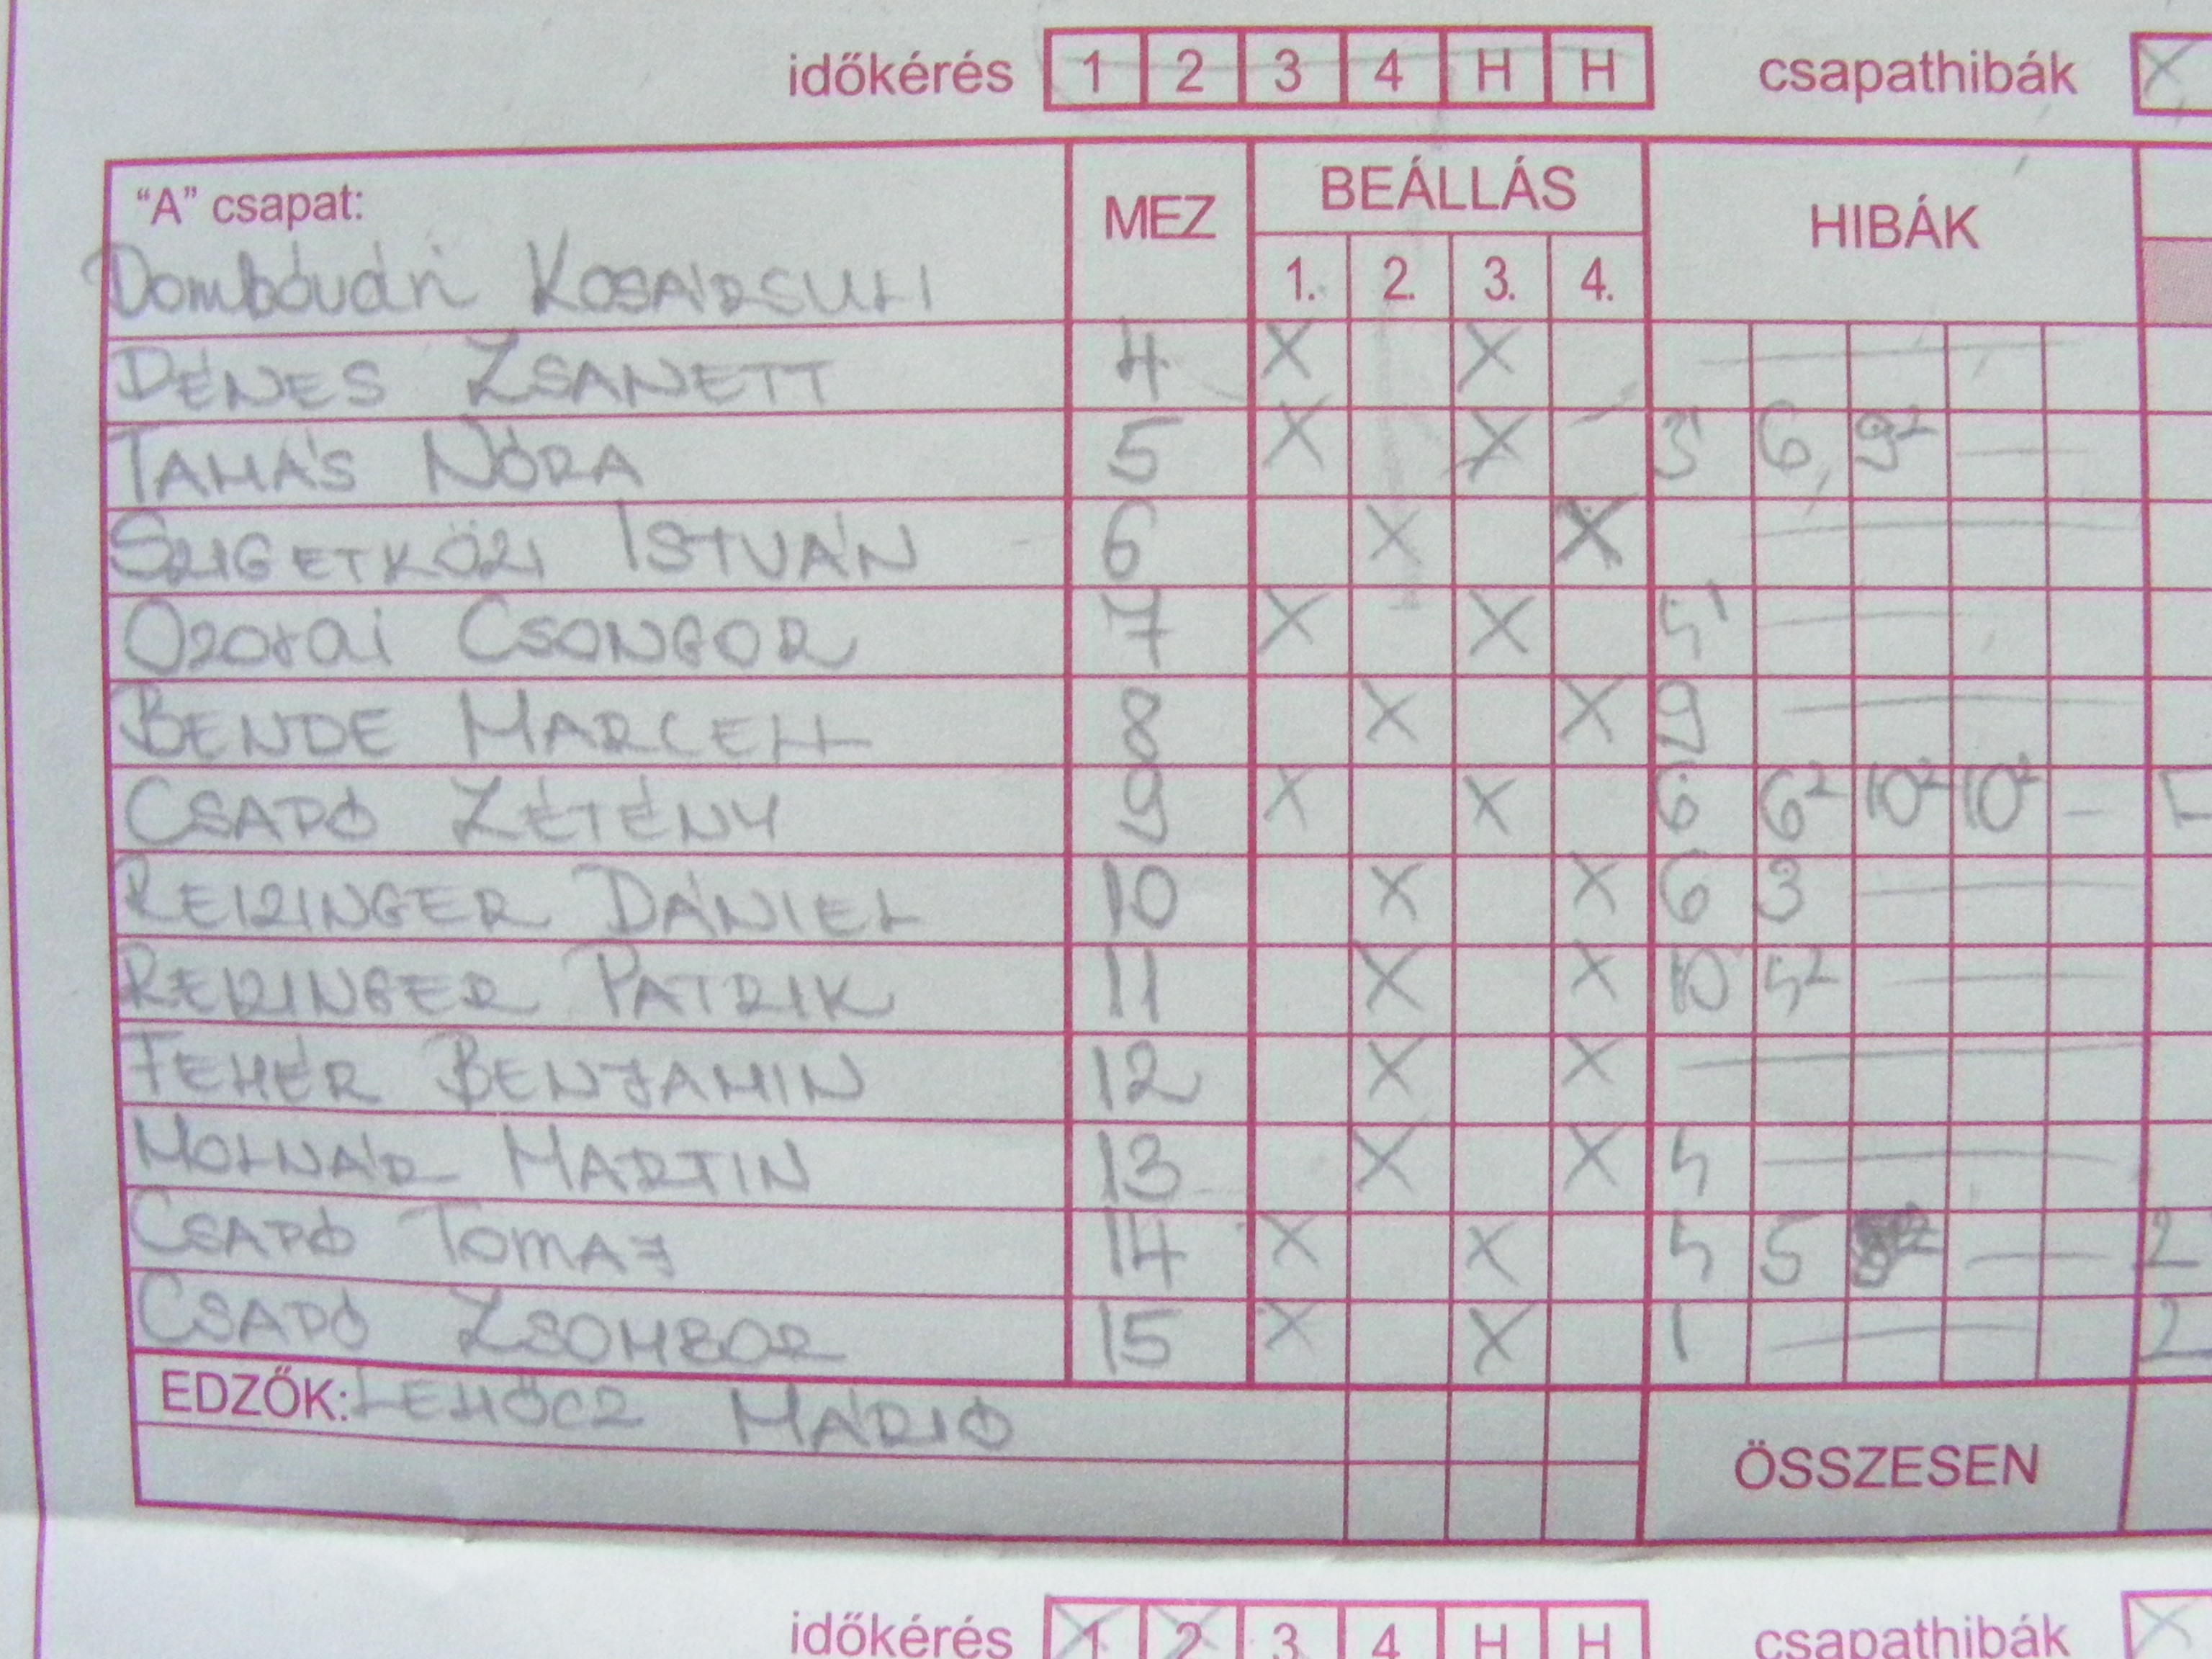 időkérés 1 2 3 4 H H csapathibák X
"A" csapat: MEZ BEÁLLÁS HIBÁK
Dombóvári KOSÁRSULI 1. 2. 3. 4.
DÉNES ZSANETT 4 X X
TAMÁS NÓRA 5 X X 3' 6 9²
SZIGETKÖZI ISTVÁN 6 X X
OZORAI CSONGOR 7 X X 5'
BENDE MARCELL 8 X X 9
CSAPÓ ZÉTÉNY 9 X X 6 6² 10² 10² –
REIZINGER DÁNIEL 10 X X 6 3
REIZINGER PATRIK 11 X X 10 5²
FEHÉR BENJAMIN 12 X X
MOLNÁR MARTIN 13 X X 5
CSAPÓ TOMAJ 14 X X 5 5 2
CSAPÓ ZSOMBOR 15 X X 1 2
EDZŐK: LEHŐCZ MÁRIÓ
ÖSSZESEN
időkérés 1 2 3 4 H H csapathibák X